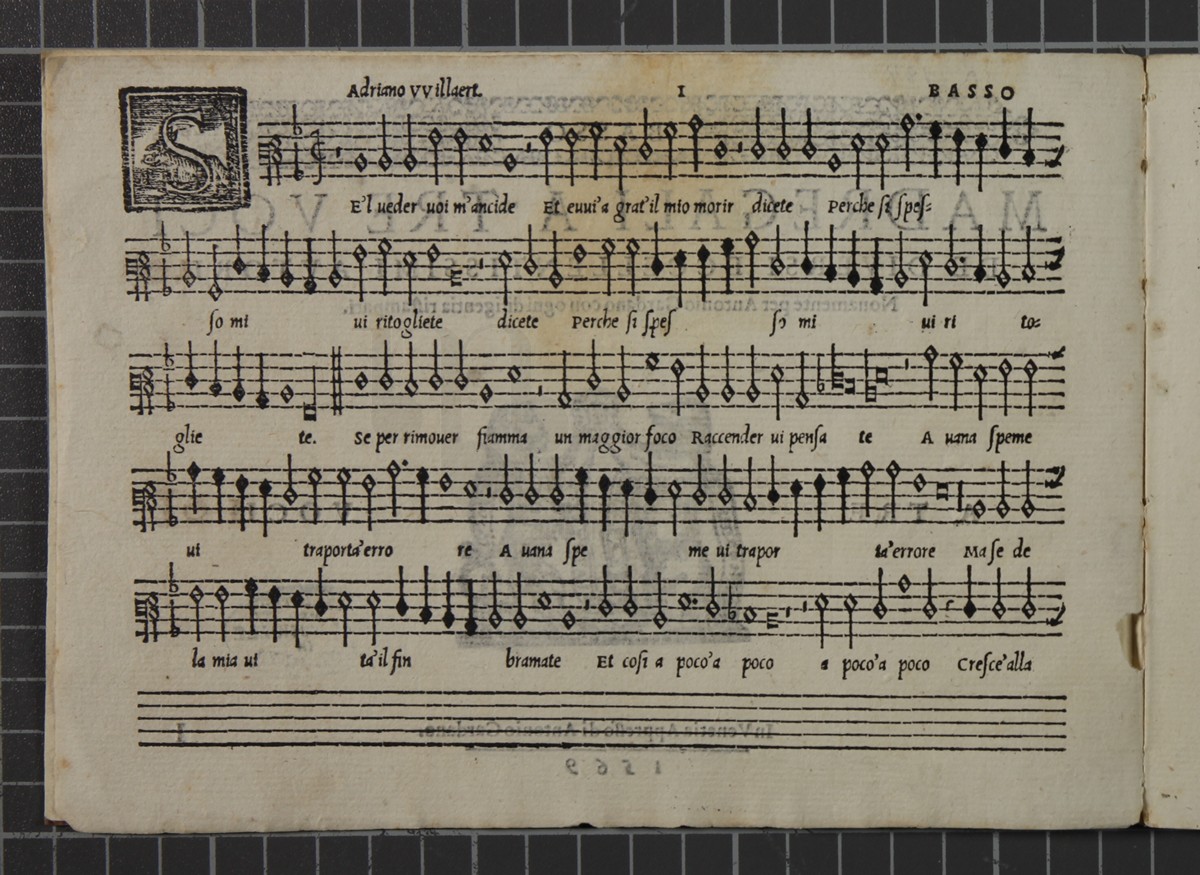 Adriano VVillaert. 1 BASSO
S
E'l ueder uoi m'ancide Et euui'a grat'il mio morir dicete Perche ſi ſpeſ=
ſo mi ui ritogliete dicete Perche ſi ſpeſ ſo mi ui ri to=
glie te. Se per rimouer fiamma un maggior foco Raccender ui penſa te A uana ſpeme
ui traporta'erro re A uana ſpe me ui trapor ta'errore Ma ſe de
la mia ui ta'il fin bramate Et coſi a poco'a poco a poco'a poco Creſce'alla
In Venetia Appreſſo di Antonio Gardano.
1 5 6 9